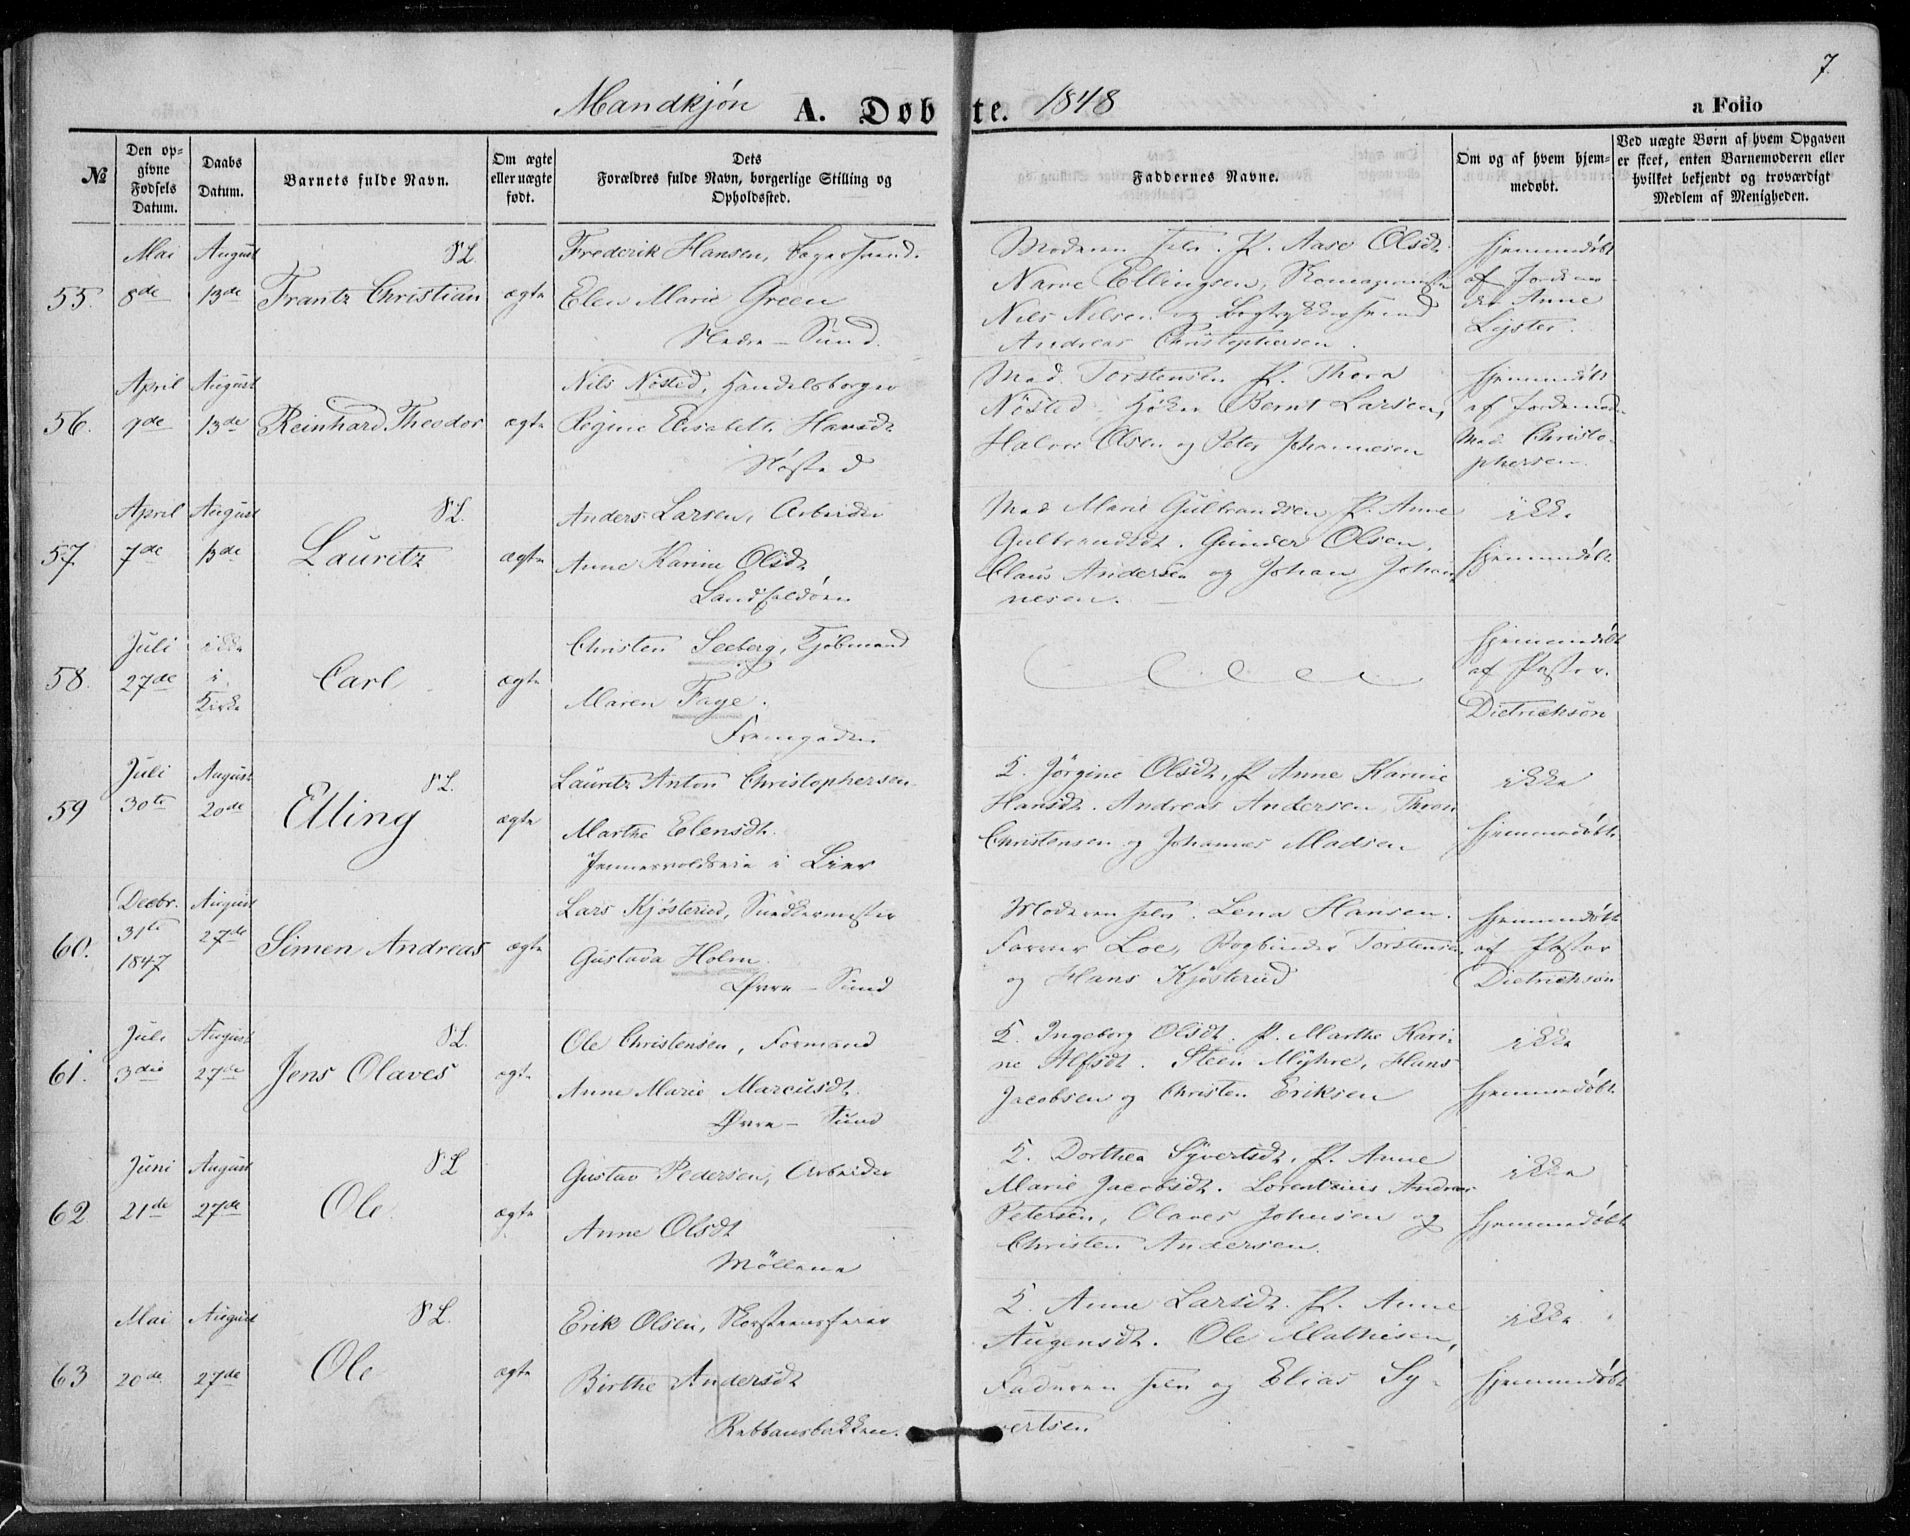 7
Mandkjøn A. Døbte. 1848 a Folio
№
Den opgivne Fødsels Datum.
Daabs Datum.
Barnets fulde Navn.
Om ægte eller uægte født.
Dets Forældres fulde Navn, borgerlige Stilling og Opholdssted.
Faddernes Navne.
Om og af hvem hjemmedøbt.
Ved uægte Børn af hvem Opgaven er skeet, enten Barnemoderen eller hvilket bekjendt og troværdigt Medlem af Menigheden.
55.
Mai 8de
August 13de
Frantz Christian
ægte
Frederik Hansen, Bagersvend.
Elen Marie Green
Nedre-Sund.
Moderen selv. P. Aase Olsdt.
Narve Ellingsen, Skomagermester
Nils Nilsen og Bogtrykkersvend
Andreas Christophersen.
hjemmedøbt
af Jordemo-
der Anne
Lyster.
56.
April
August 13de
Reinhard Theodor
ægte
Nils Nøsted, Handelsborger
Regine Elisabeth Hansdt
Nøsted
Mad. Torstensen P. Thora
Nøsted, Høker Bernt Larsen,
Halvor Olsen og Peter Johannesen
hjemmedøbt
af Jordemod.
Mad. Christo-
phersen.
57.
April 7de
August 13de
SL.
Lauritz
ægte
Anders Larsen, Arbeider
Anne Karine Olsdt
Landfaldøen
Mad Marie Gulbrandsen P. Anne
Gulbrandsdt. Gunder Olsen,
Claus Andersen og Johan Johan-
nesen.
ikke
hjemmedøbt
58.
Juli 27de
ikke
i
Kirke
Carl
ægte
Christen Seeberg, Kjøbmand
Maren Faye.
Fremgaden
hjemmedøbt
af Pastor.
Dietrichson
59
Juli 30te
August 20de
SL.
Elling
ægte
Lauritz Anton Christophersen
Marthe Elensdt.
i Lier
Q. Jørgine Olsdt, P Anne Karine
Hansdt. Andreas Andersen, Thron
Christensen og Johannes Madsen
ikke
hjemmedøbt
60.
Decbr. 31te 1847
August 27de
Simen Andreas
ægte
Lars Kjøsterud, Snedkermester
Gustava Holm.
Øvre-Sund
Moderen selv. Lena Hansen.
Farver Loe, Bogbinder Torstensen
og Hans Kjøsterud
hjemmedøbt
af Pastor
Dietrichson
61.
Juli 3die
August 27de
SL.
Jens Olaves
ægte
Ole Christensen, Formand
Anne Marie Marcusdt.
Øvre-Sund
Q. Ingeborg Olsdt. P. Marthe Kari-
ne Alfsdt. Steen Myhre, Hans
Jacobsen og Christen Eriksen
ikke
hjemmedøbt
62
Juni 21de
August 27de
SL
Ole
ægte
Gustav Pedersen, Arbeider
Anne Olsdt
Møllene
Q. Dorthea Syvertsdt. P. Anne
Marie Jacobsdt. Lorentzius Andreas
Petersen, Olaves Johnsen og
Christen Andersen.
ikke
hjemmedøbt
63
Mai 20de
August 27de
SL.
Ole
ægte
Erik Olsen, Skorsteensfeier
Birthe Andersdt
Rabbansbakken.
Q. Anne Larsdt. P. Anne
Augensdt. Ole Mathisen,
Faderen selv og Elias Sy-
vertsen
ikke
hjemmedøbt